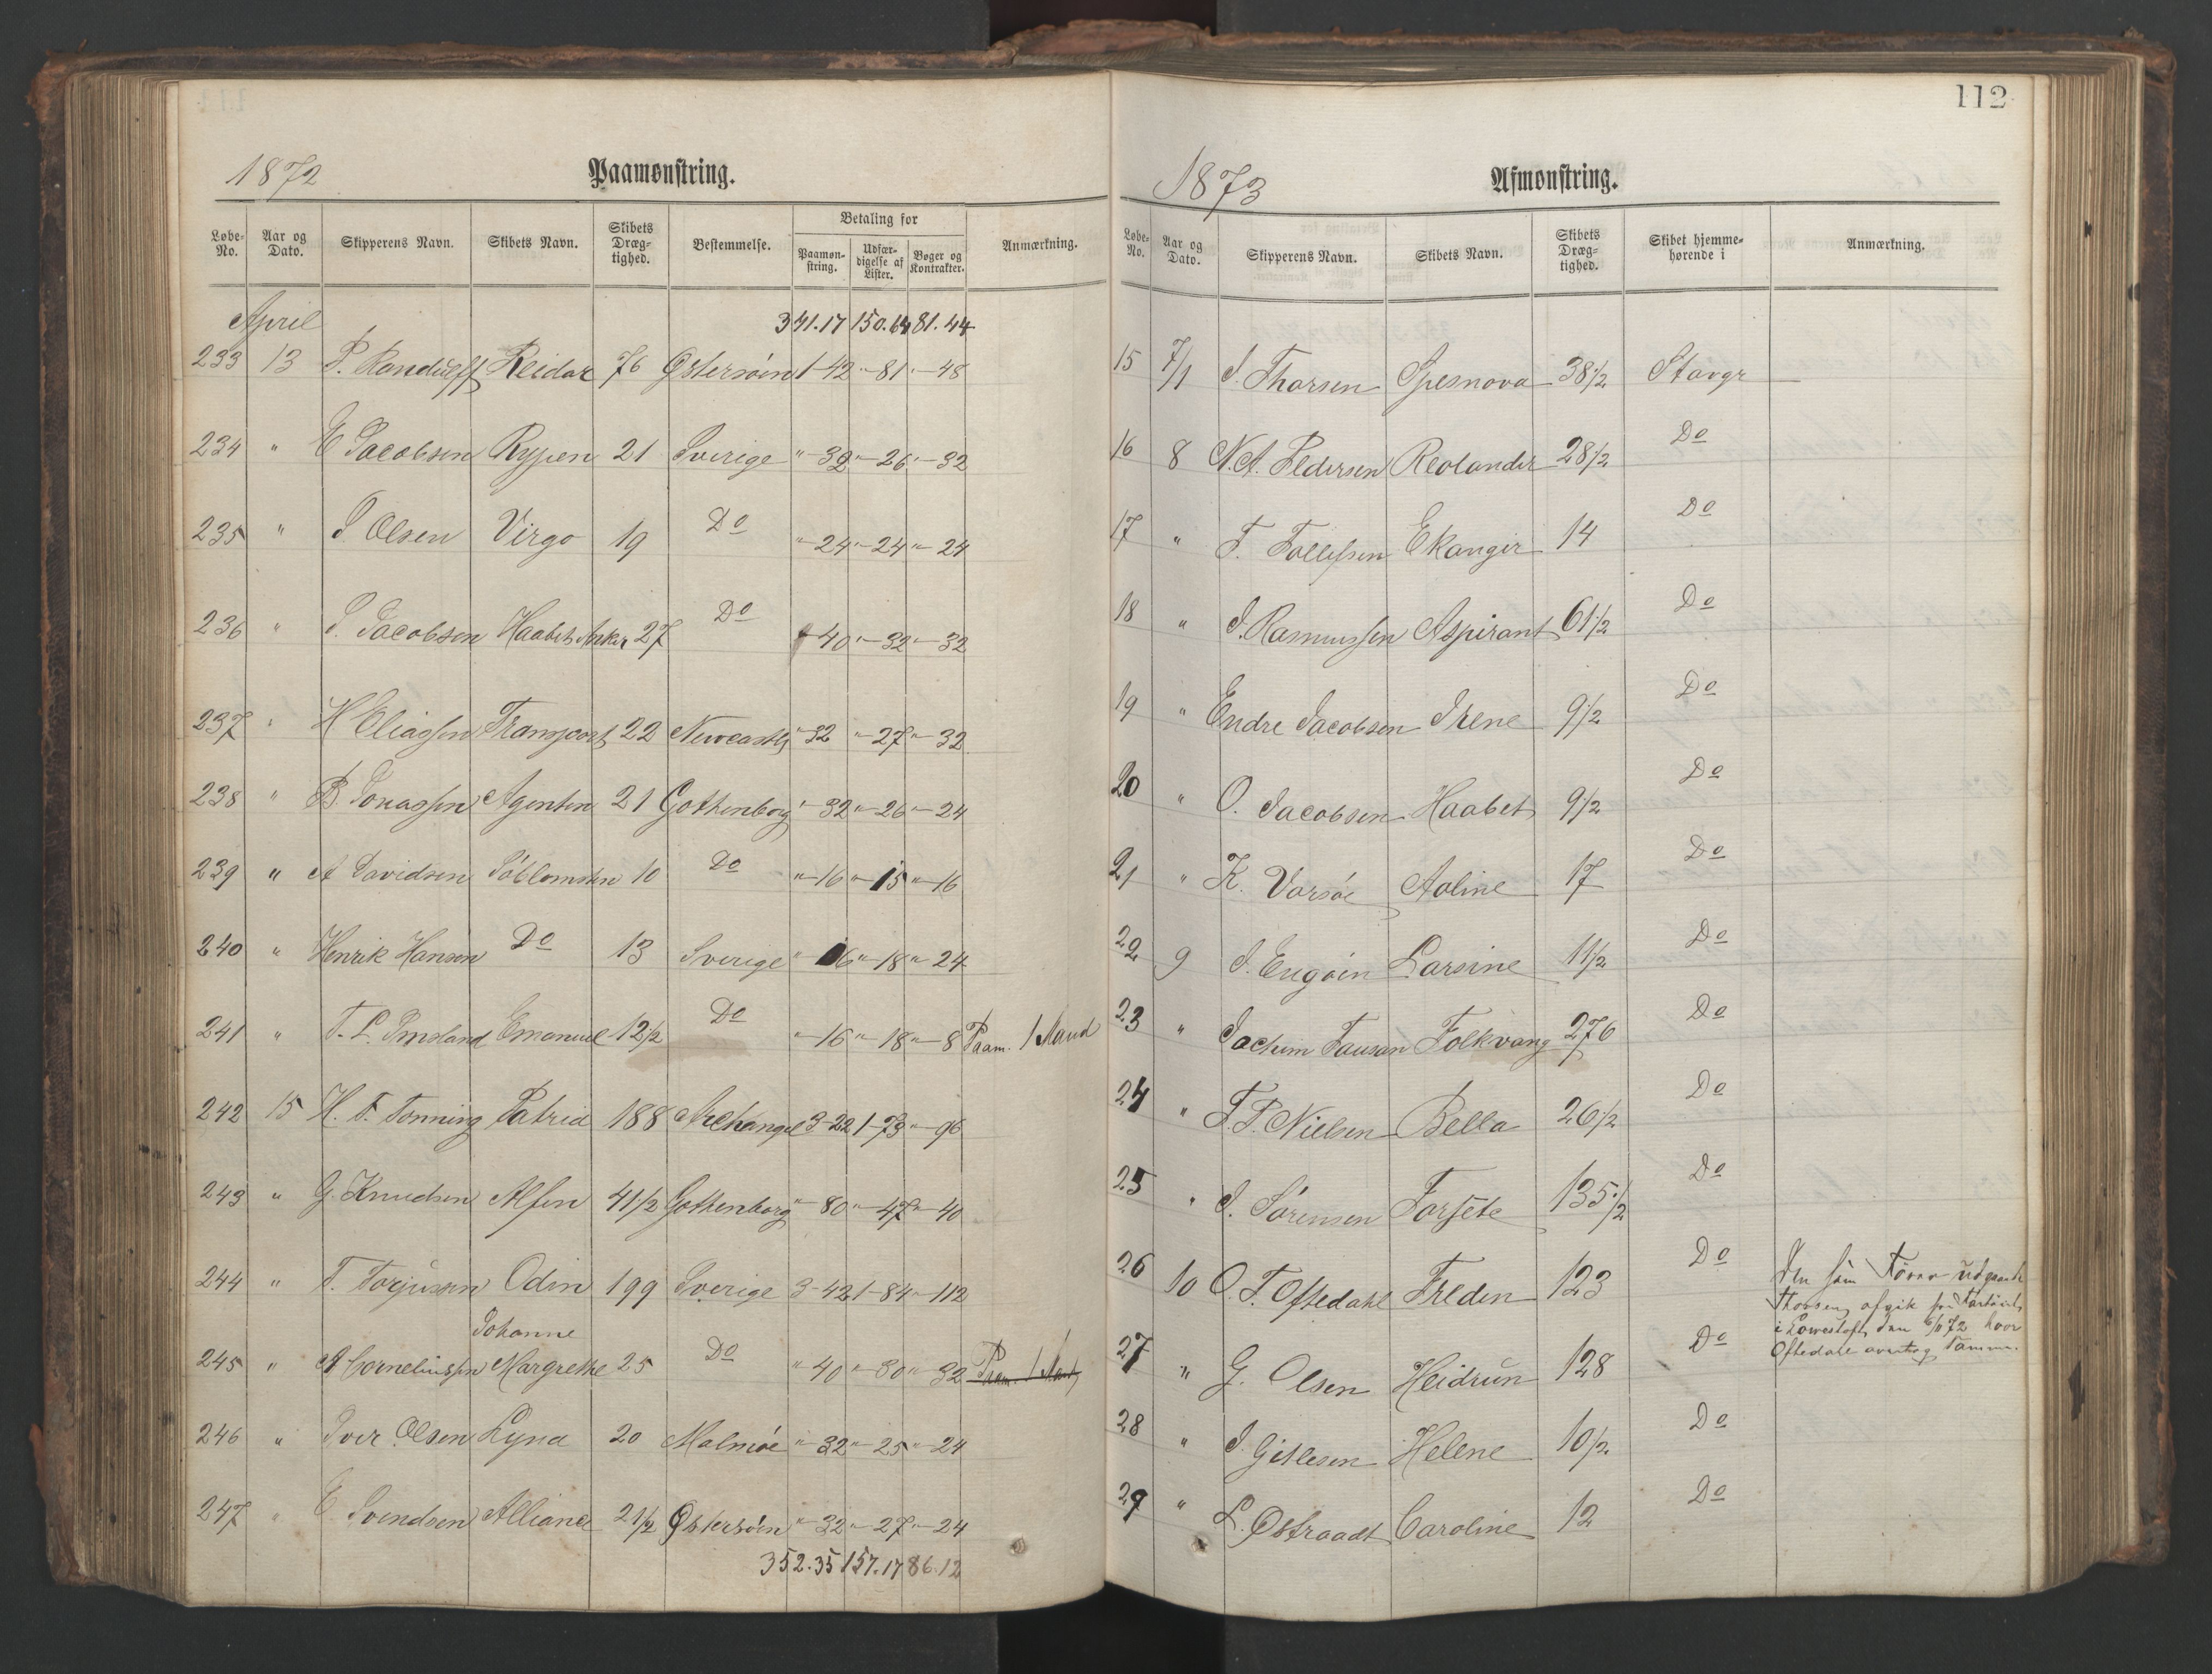 1872 Paamønstring.
Løbe-No. Aar og Dato. Skipperens Navn. Skibets Navn. Skibets Dræg-tighed. Bestemmelse. Betaling for Paamøn-string. Udfær-digelse af Lister. Bøger og Kontrakter. Anmærkning.
April 341.17 150.64 81.44
233 13 P. Randulff Reidar 76 Østersøin 1-42 "-81 "-48
234 " E Jacobsen Rypen 21 Sverige "-32 "-26 "-32
235 " J. Olsen Virgo 19 Do "-24 "-24 "-24
236 " S. Jacobsen Haabets Anker 27 Do "-40 "-32 "-32
237 " H Eliassen Transport 22 Newcastle "-32 "-27 "-32
238 " B. Jonassen Agenten 21 Gothenborg "-32 "-26 "-24
239 " A Davidsen Søblomsten 10 Do "-16 "-15 "-16
240 " Henrik Hansen Do 13 Sverige "-16 "-18 "-24
241 " T. L. Imsland Emanuel 12 1/2 Do "-16 "-18 "-8 Paam. 1 Mand
242 15 H. F. Tonning Patria 188 Archangel 3-22 1-73 "-96
243 " G. Knudsen Alfen 41 1/2 Gothenborg "-80 "-47 "-40
244 " T. Torjussen Odin 199 Sverige 3-42 1-84 "-112
Johanne
245 " A Corneliussen Margrethe 25 Do "-40 "-30 "-32 Paam. 1 Mand
246 " Iver Olsen Lyna 20 Malmøe "-32 "-25 "-24
247 " E Svendsen Alliance 21 1/2 Østersøin "-32 "-27 "-24
352.35 157.17 86.12
112
1873 Afmønstring.
Løbe-No. Aar og Dato. Skipperens Navn. Skibets Navn. Skibets Dræg-tighed. Skibet hjemme-hørende i Anmærkning.
15 7/1 J. Thorsen Spesnova 38 1/2 Stavgr
16 8 N. A. Pedersen Reolander 28 1/2 Do
17 " T. Tollefsen Ekangir 14 Do
18 " J. Rasmussen Aspirant 61 1/2 Do
19 " Endre Jacobsen Irene 9 1/2 Do
20 " O. Jacobsen Haabet 9 1/2 Do
21 " K. Varsøe Aoline 17 Do
22 9 J. Engøin Larsine 11 1/2 Do
23 " Jachim Tausan Folkvang 276 Do
24 " T. P. Nielsen Bella 26 1/2 Do
25 " J. Sørensen Forsete 135 1/2 Do
26 10 O. T. Oftedahl Freden 123 Do Den som fører udgaaede
Thorsen, afgik fra Fartøiet,
i Lowestoft, den 6/11 72 hvor
Oftedahl overtog samme.
27 " G. Olsen Heidrun 128 Do
28 " J. Gitlesen Helene 10 1/2 Do
29 " L. Østraadt Caroline 12 Do